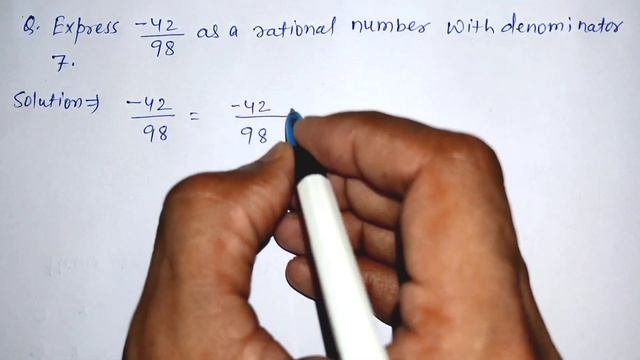 Q. Express -42/98 as a rational number with denominator
7.
Solution⇒ -42/98 = -42/98